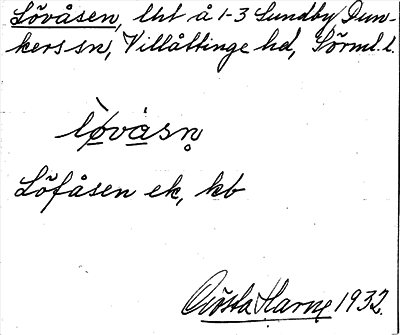 Lövåsen, lht å 1-3 Sundby, Dun-
kers sn, Villåttinge hd, Sörml. l.
lø̀vàsn̥
Löfåsen ek, kb
Gösta Harne 1932.